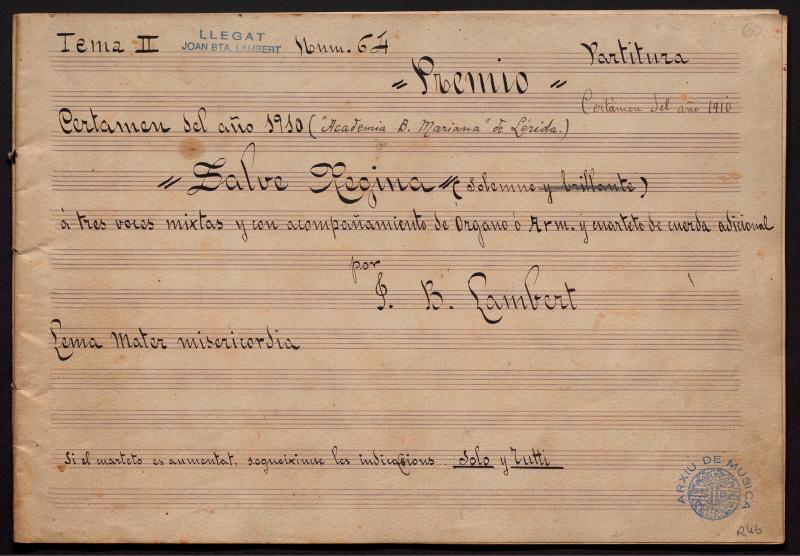 60
Tema II LLEGAT Num. 64 Partitura
JOAN BTA. LAMBERT
" Premio "
Certámen del año 1910
Certamen del año 1910 ("Academia B. Mariana" de Lérida.)
" Salve Regina " (Solemne y brillante)
á tres voces mixtas y con acompañamiento de Organo ó Arm. y cuarteto de cuerda adicional
por
J. B. Lambert
Lema Mater misericordia
Si el cuarteto es aumentat, segueixinse les indicacions. Solo y Tutti
ARXIU DE MUSICA
R46